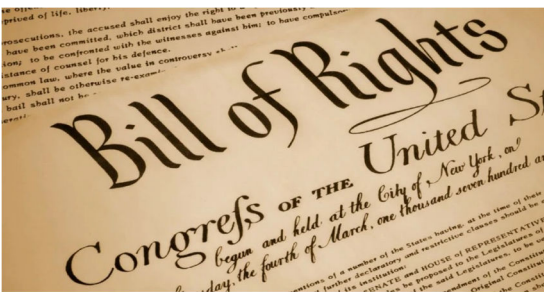 prived of life, liberty,
rosecutions, the accused shall enjoy the right to a
have been committed, which district shall have been previously
ion; to be confronted with the witnesses against him; to have compulsory
istance of counsel for his defence.
ommon law, where the value in controversy sh
ury, shall be otherwise re-exami
bail shall not be
Bill of Rights
Congreſs OF THE United St
begun and held at the City of New York, on
day, the fourth of March, one thousand seven hundred an
entions of a number of the States having, at the time of their
further declaratory and restrictive clauses should be a
its institution:
SENATE and HOUSE of REPRESENTATIVE
be proposed to the Legislatures of
the said Legislatures, to be
of the Constitut
Original Constitut
the Constit